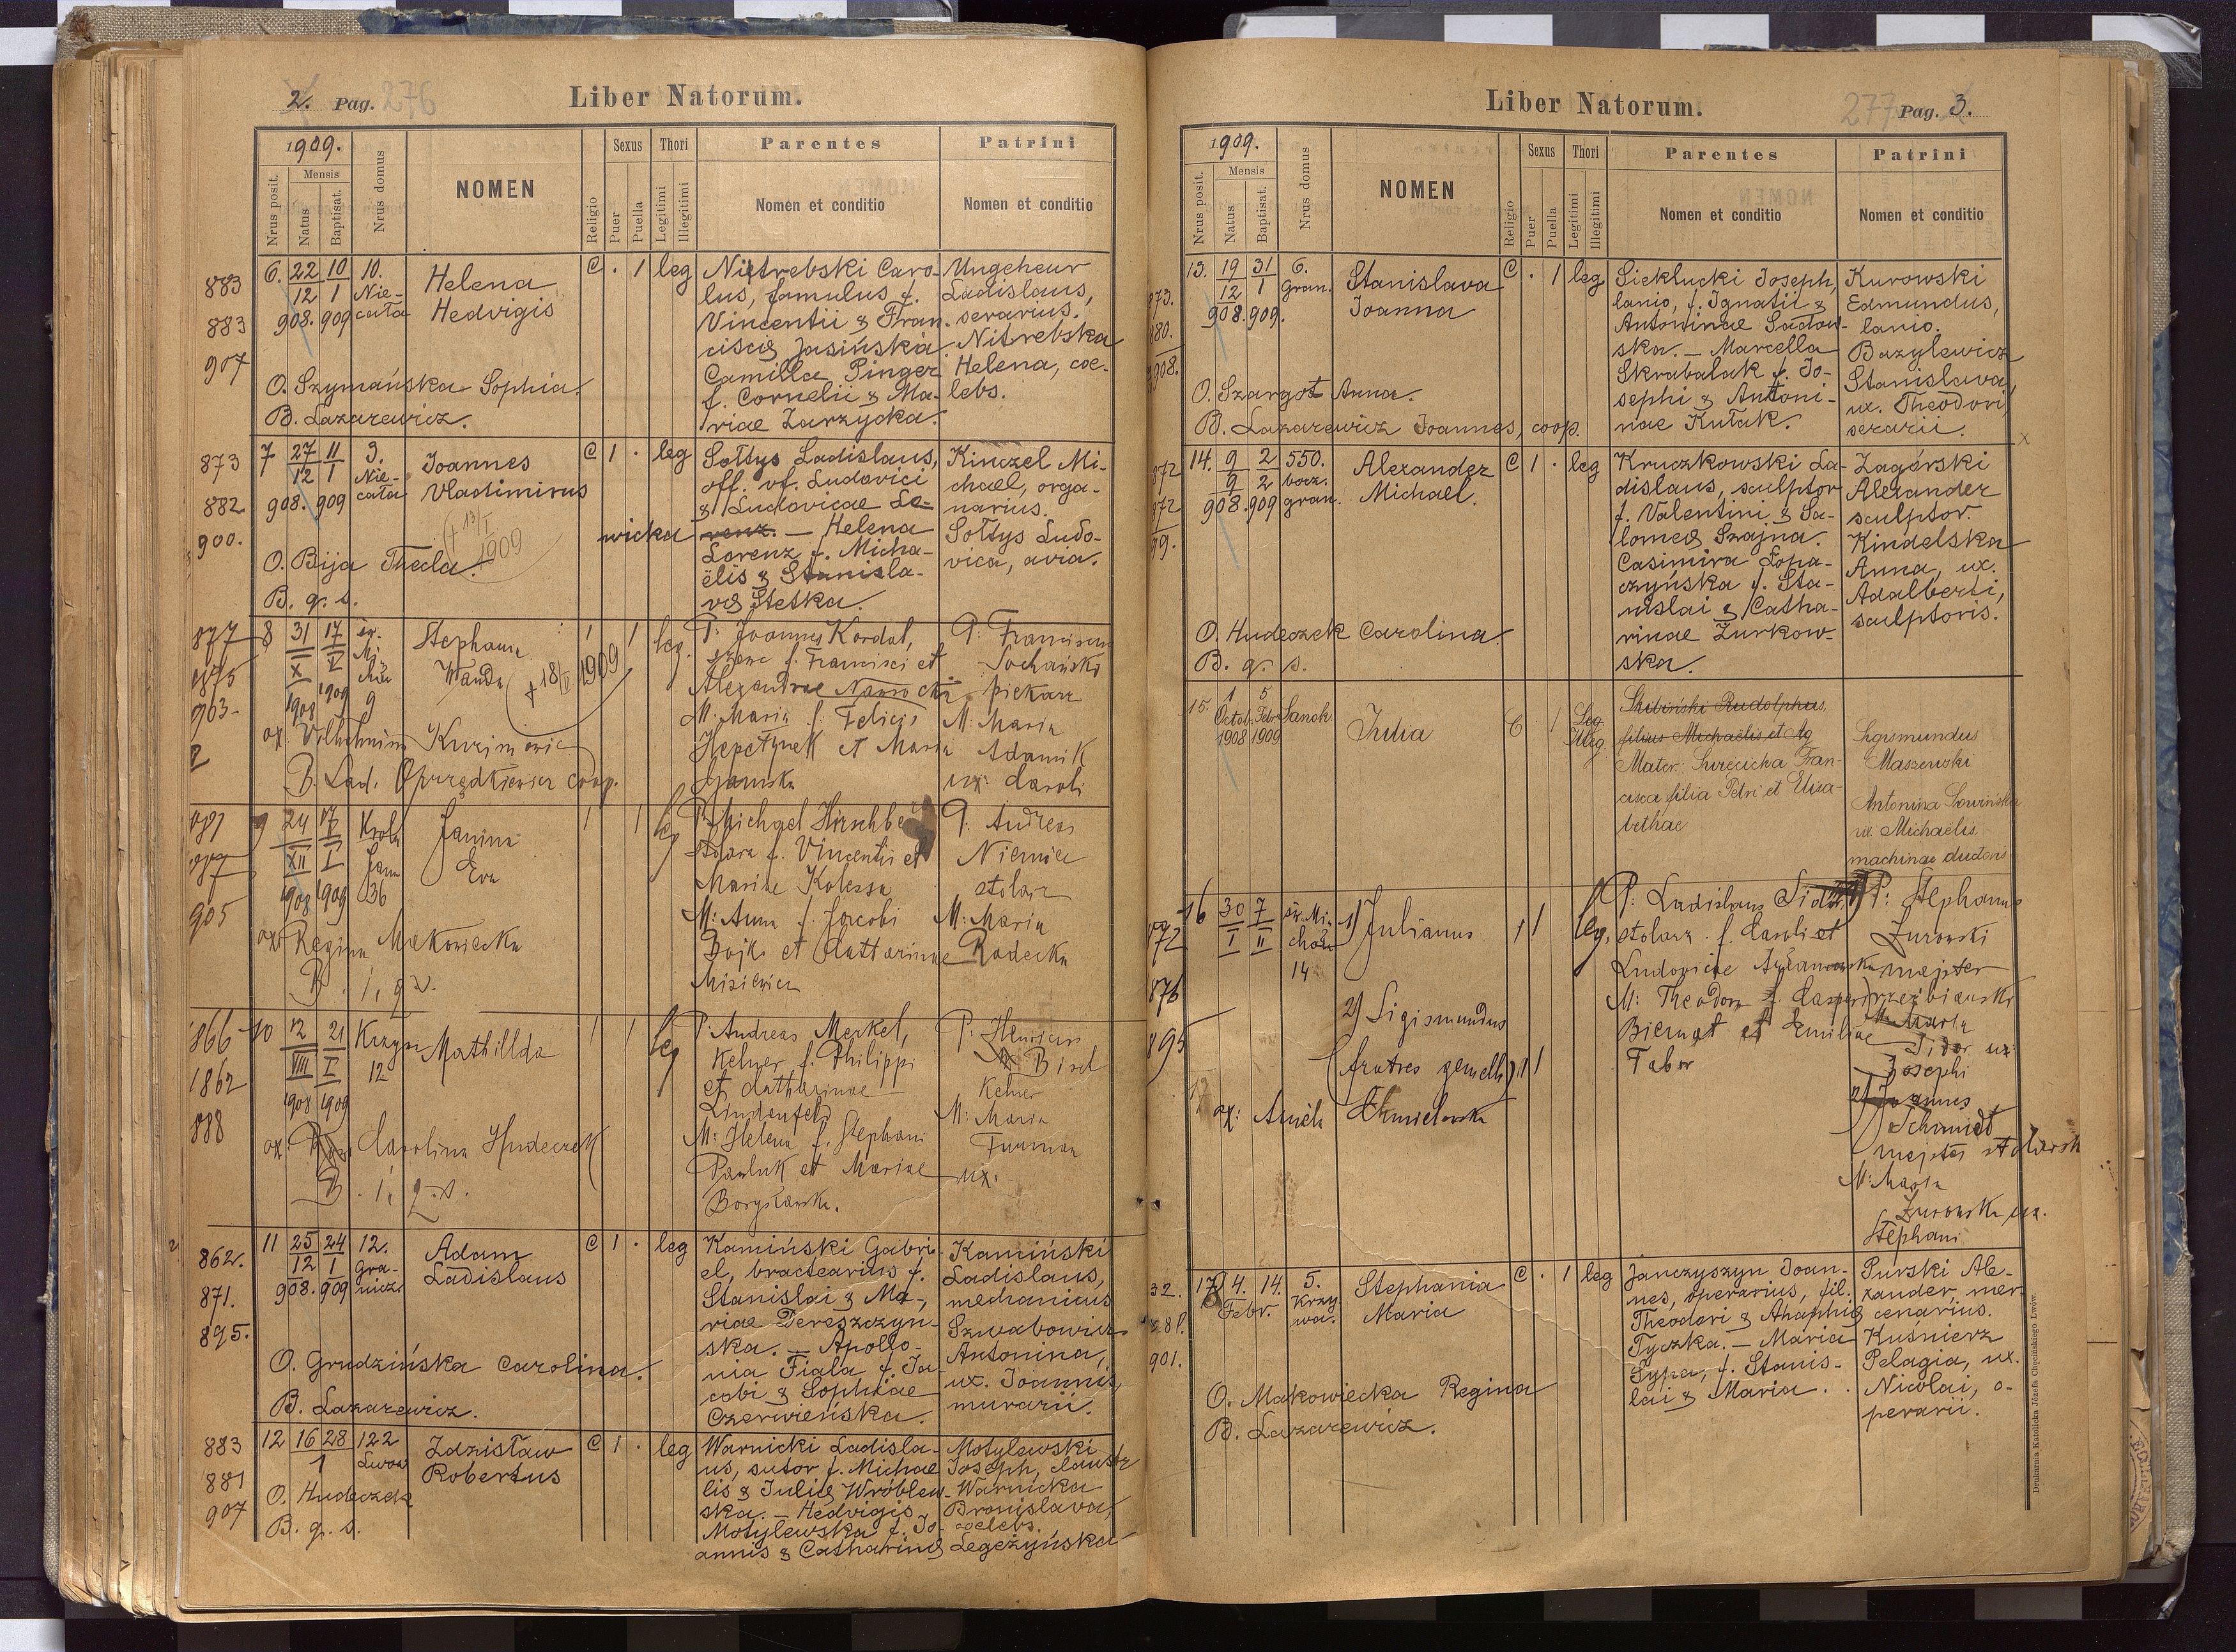 2. Pag. 276
Liber Natorum.
1909.
Nrus posit.
Mensis
Natus
Baptisat.
Nrus domus
NOMEN
Religio
Sexus
Puer
Puella
Thori
Legitimi
Illegitimi
Parentes
Nomen et conditio
Patrini
Nomen et conditio
883
883
907
6. 22 10 10.
12 1 Nie-
908. 909 cała
Helena
Hedvigis
C . 1 leg
Nietrebski Caro-
lus, famulus f.
Vincentii & Fran-
ciscæ Jasińska
Camilla Pinger
f. Cornelii & Ma-
riae Zarzycka.
Ungeheur
Ladislaus,
serarius.
Nitrebska
Helena, coe-
lebs.
O. Szymańska Sophia.
B. Lazarewicz.
873
882
900.
7 27 11 3.
12 1 Nie-
908. 909 cała
Joannes
Vladimirus
+ 13/I 1909
C 1 . leg
Sołtys Ladislaus,
off. vf. Ludovici
& Ludovicae Le-
wicka renz. — Helena
Lorenz f. Micha-
ëlis & Stanisla-
væ Stetka.
Kinczel Mi-
chael, orga-
narius.
Sołtys Ludo-
vica, avia.
O. Bija Thecla.
B. q. s.
877
875
903
8 31 17
X V
1908 1909 9
Stephania
Wanda
+ 18/V 1909
1 1 leg.
P: Joannes Kordal,
szewc f. Francisci et
Alexandrae Nawrocka
M: Maria f. Felicis
et Maria
P: Franciscus
Sochański
piekarz
M: Maria
Adamik
ux: Caroli
ox: Vilhelmina Kuzimowicz
B. Lad. Oprządkiewicz coop.
905
9 24 17 Król
XII I Jana
1908 1909 36
Janina
Eva
1 1 leg
P: Michael Hirschbe
stolarz f. Vincentii et
Mariae Kolessa
M: Anna f. Jacobi
Bojko et Cattarinae
Misiewicz
P: Andreas
Niemiec
stolarz
M: Maria
Radecka
ox: Regina Makowiecka
B. i. q. s.
1866
1862
888
10 12 21 Krzyw
VIII I 12
1908 1909
Mathillda
1 1 leg
P: Andreas Merkel,
Kelner f. Philippi
et Catharinae
Lindenfeld
M: Helena f. Stephani
Pawluk et Mariae
Borysławska.
P: Henricus
Bisel
Kelner
M: Maria
Furman
ux.
ox: Carolina Hudeczek
B. i. q. s.
862.
871.
895.
11 25 24 12.
12 1 Gra-
908. 909 niczn
Adam
Ladislaus
C 1 . leg
Kamiński Gabri-
el, bractearius f.
Stanislai & Ma-
riae Dereszczyn-
ska. — Apollo-
nia Fiala f. Ja-
cobi & Sophiae
Czerwieńska.
Kamiński
Ladislaus,
mechanicus
Szwabowicz
Antonina,
ux. Joannis,
murarii.
O. Grudzińska Carolina.
B. Lazarewicz.
883
881
907
12 16 28 122
1 Lwow
Zdzisław
Robertus
C 1 . leg
Warnicki Ladisla-
us, sutor f. Michae
lis & Juliæ Wróblew-
ska. — Hedvigis
Motylewska f. Jo-
annis & Catharinæ Legeżyńska
Motylewski
Joseph, claustr
Warnicka
Bronislava,
coelebs.
O. Hudeczek
B. q. s.
Liber Natorum.
277 Pag. 3.
1909.
Nrus posit.
Mensis
Natus
Baptisat.
Nrus domus
NOMEN
Religio
Sexus
Puer
Puella
Thori
Legitimi
Illegitimi
Parentes
Nomen et conditio
Patrini
Nomen et conditio
873.
880.
908.
13. 19 31 6.
12 1 gran.
908. 909.
Stanislava
Joanna
C . 1 leg
Sieklucki Joseph,
lanio, f. Ignatii &
Antoninae Sadow-
ska. — Marcella
Skrabalak f. Jo-
sephi & Antoni-
nae Kutak.
Kurowski
Edmundus,
lanio.
Bazylewicz
Stanislava,
ux. Theodori,
serarii.
O. Szargot Anna.
B. Lazarewicz Joannes, coop.
872
872
99.
14. 9 2 550.
9 2 bocz.
908. 909 gran.
Alexander
Michael.
C 1 . leg
Kruczkowski La-
dislaus, sculptor
f. Valentini & Sa-
lomeæ Szajna.
Casimira Łopa-
czyńska f. Sta-
nislai & Catha-
rinae Żurkow-
ska.
Zagórski
Alexander
sculptor.
Kindelska
Anna, ux.
Adalberti,
sculptoris.
O. Hudeczek Carolina.
B. q. s.
15. 1 5
Octob. Febr. Sanok
1908 1909
Julia
C 1 Leg
Illeg.
Skibiński Rudolphus,
filius Michaelis et Ag
Mater: Surecicha Fran-
cisca filia Petri et Elisa-
bethae
Sigismundus
Maszewski
Antonina Sowińska
ux. Michaelis
machinae ductoris
872
876
895
16 30 7 św. Mi-
I II chała
14
1) Julianus
2) Sigismundus
(fratres gemelli)
1 1 leg.
P: Ladislaus Sidor
stolarz f. Caroli et
Ludovicae
M: Theodora f. Casperi
Biernat et Emiliae
Tabor
P: Stephanus
Żurowski
majster
rzeźbiarski
M: Maria
Sidor ux:
Josephi
Joannes
Schmidt
majster stolarsk
M: Maria
Żurowska ux.
Stephani
ox: Aniela Chmielowska
32.
881.
901.
17 4. 14. 5.
Febr. Krzy
wa.
Stephania
Maria
C . 1 leg
Janczyszyn Joan-
nes, operarius, fil.
Theodori & Ahaphiæ
Tyczka. — Maria
Sypa, f. Stanis-
lai & Maria.
Purski Ale-
xander, mer-
cenarius.
Kuśnierz
Pelagia, ux.
Nicolai, o-
perarii.
O. Makowiecka Regina
B. Lazarewicz.
Drukarnia Katolicka Józefa Chęcińskiego Lwów.